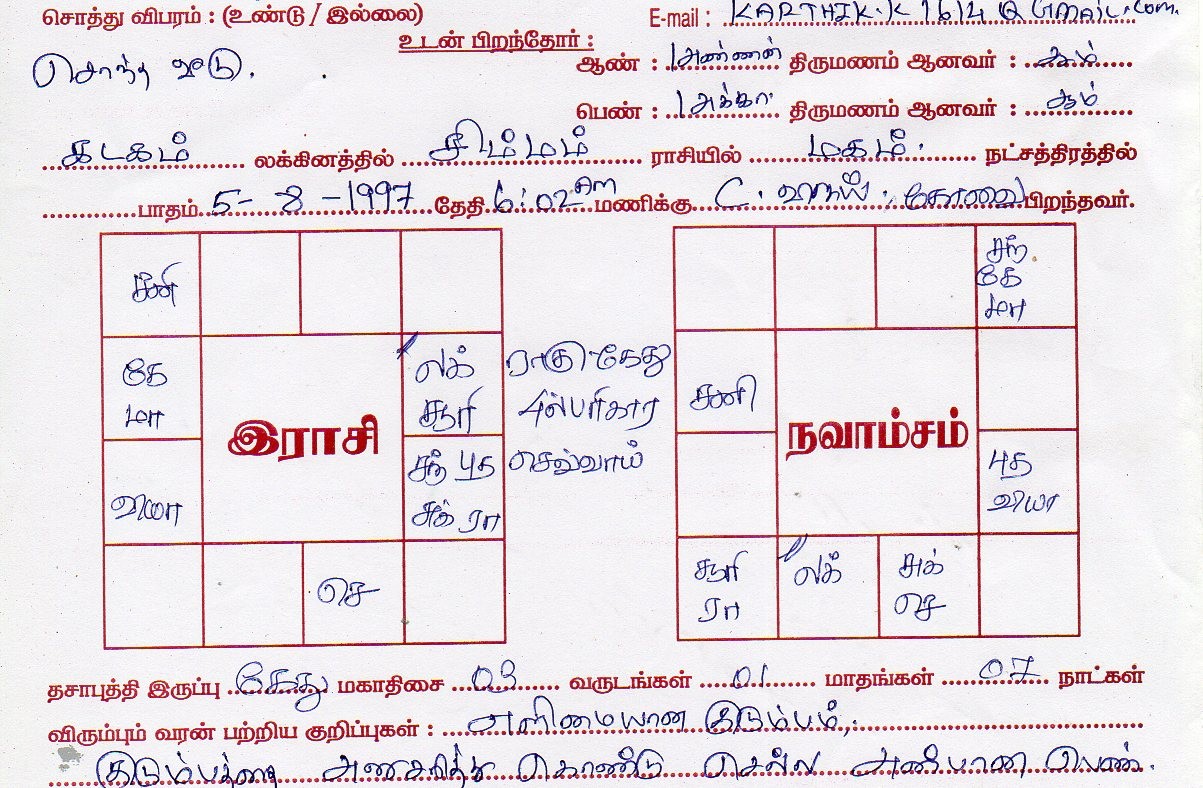 சொத்து விபரம் : (உண்டு / இல்லை) E-mail : KARTHIK.K1614@Gmail.com.
உடன் பிறந்தோர் :
சொந்த வீடு. ஆண் : 1 அண்ணன் திருமணம் ஆனவர் : ஆம்
பெண் : 1 அக்கா திருமணம் ஆனவர் : ஆம்
கடகம் லக்கினத்தில் சிம்மம் ராசியில் மகம். நட்சத்திரத்தில்
பாதம் 5-8-1997 தேதி 6:02 am மணிக்கு கோவை பிறந்தவர்.
சனி
கே
மா
வியா
செ
லக்
சூரி
சந் புத
சுக் ரா
இராசி
ராகு கேது
செவ்வாய்
சந்
கே
மா
சனி
புத
வியா
சூரி
ரா
லக்
சுக்
செ
நவாம்சம்
தசாபுத்தி இருப்பு கேது மகாதிசை 03 வருடங்கள் 01 மாதங்கள் 07 நாட்கள்
விரும்பும் வரன் பற்றிய குறிப்புகள் : எளிமையான குடும்பம்,
குடும்பத்தை அனுசரித்து கொண்டு செல்ல அன்பான பெண்.